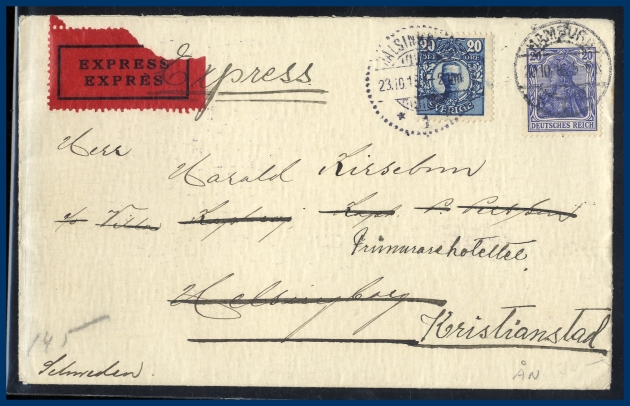 EXPRESS
EXPRÈS
Express
20 20
SVERIGE
23.10.1
1
HAMBURG
20 20
DEUTSCHES REICH
Herr
Harald Kirsebom
c/o Villa
Frimurarehotellet
Helsingborg
Kristianstad
145
Schweden.
ÅN